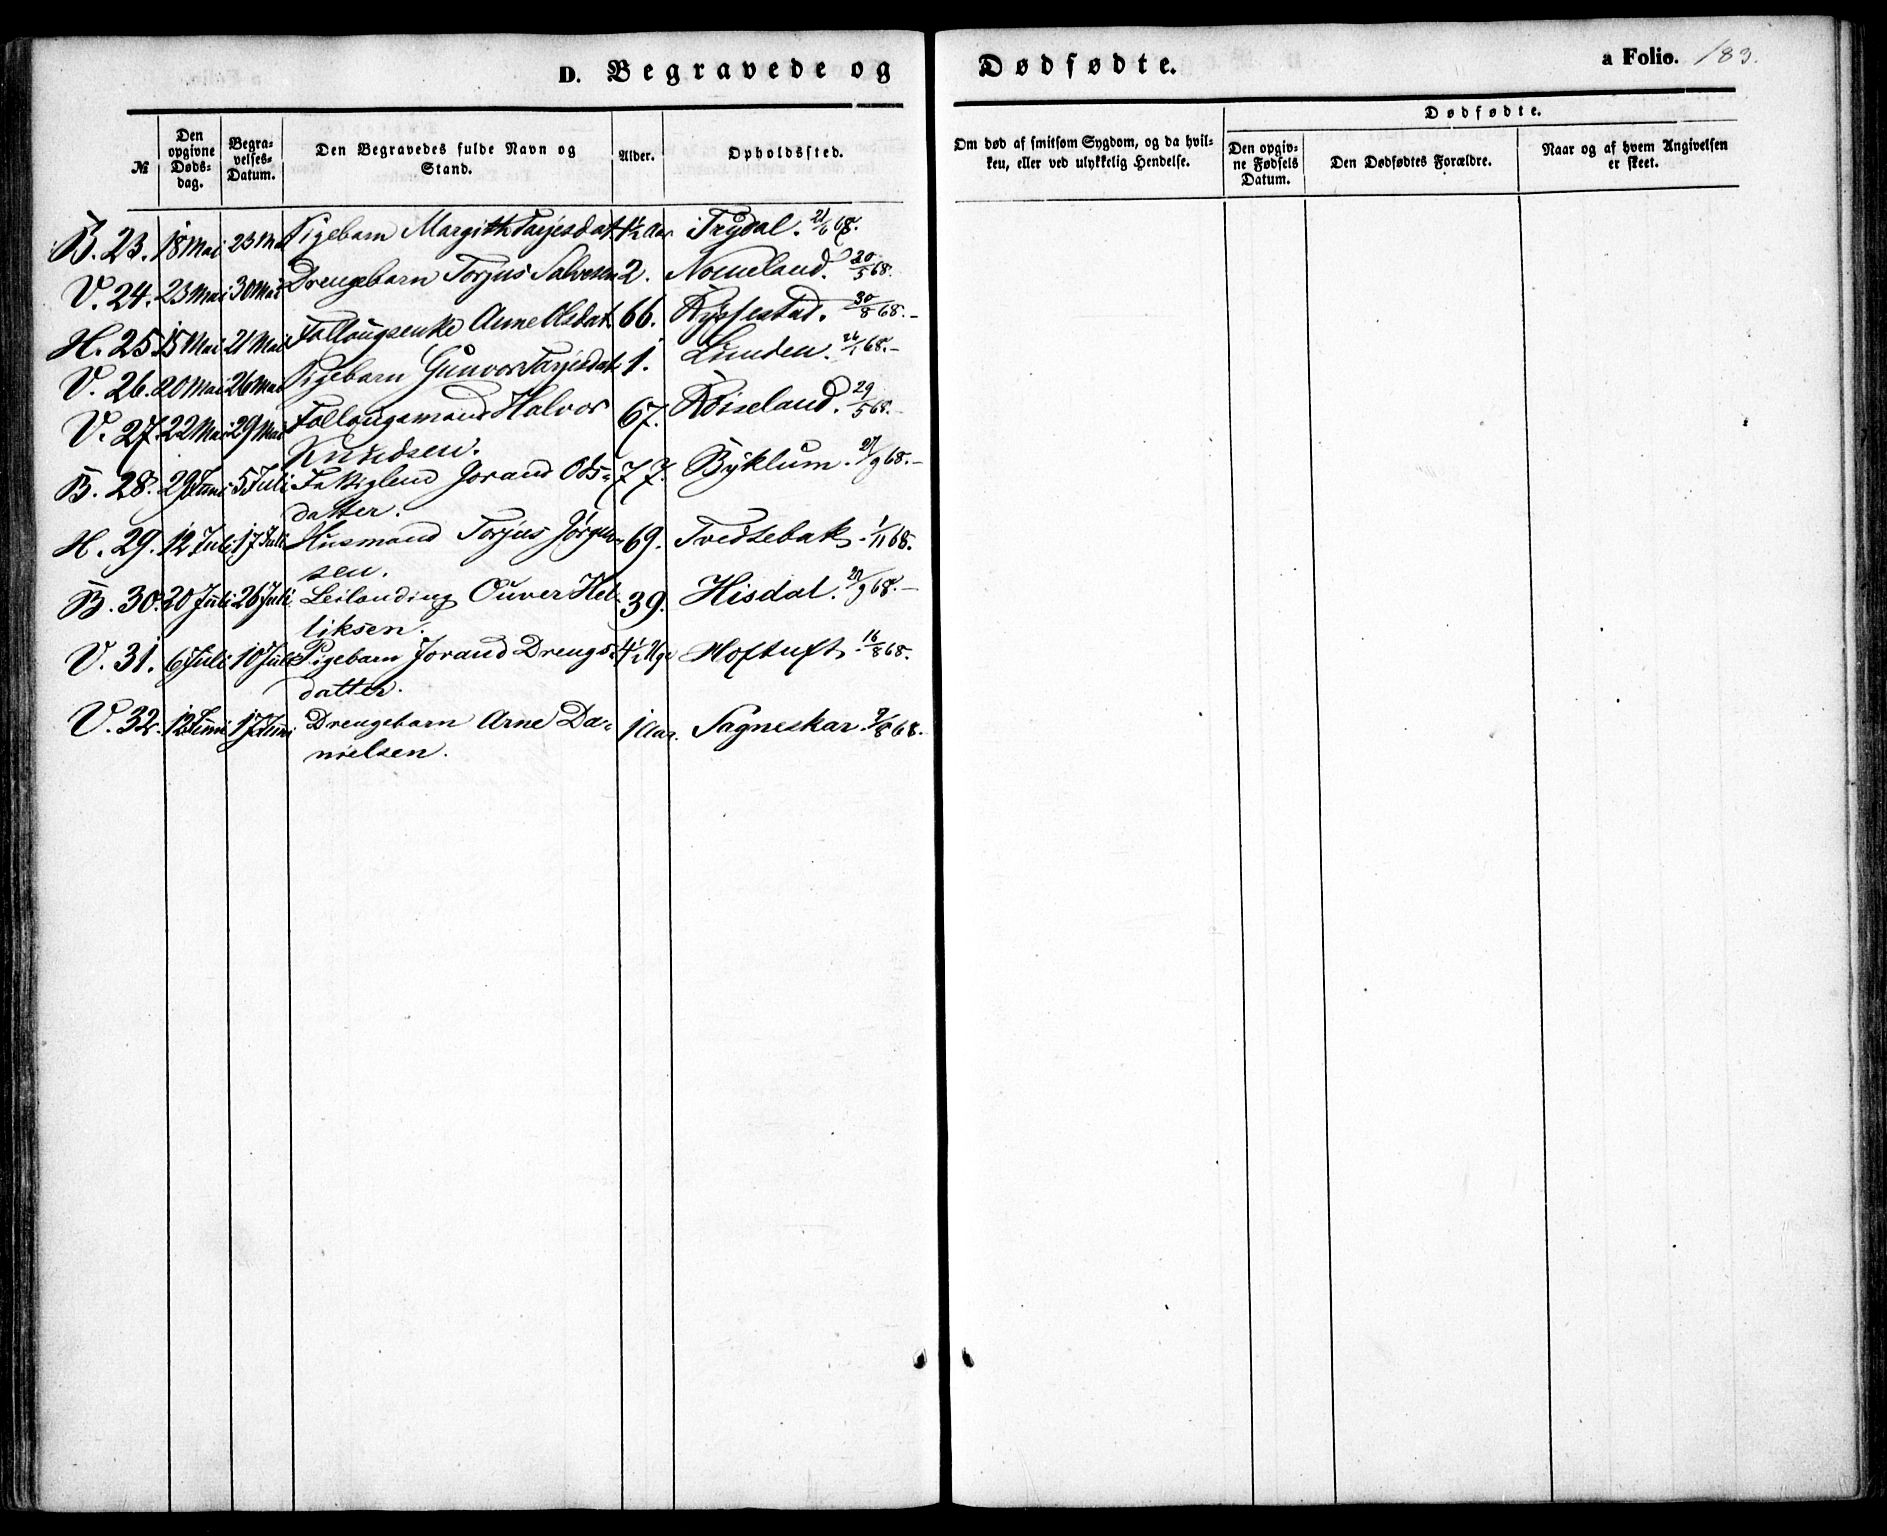 D. Begravede og Dødfødte. a Folio. 183.
Dødfødte.
№ Den opgivne Dødsdag. Begravelses-Datum. Den Begravedes fulde Navn og Stand. Alder. Opholdssted. Om død af smitsom Sygdom, og da hvilken, eller ved ulykkelig Hendelse. Den opgivne Fødsels Datum. Den Dødfødtes Forældre. Naar og af hvem Angivelsen er skeet.
B. 23. 18 Mai 23 Mai Pigebarn Margith Tarjesdat. 4½ Aar Trydal. 21/6 68.
V. 24. 23 Mai 30 Mai Drengebarn Torjus Salvesen 2. Nomeland. 20/5 68.
H. 25 15 Mai 21 Mai Follougsenke Anne Olsdat. 66. Rysfestad. 30/8 68.–
V. 26. 20 Mai 26 Mai Pigebarn Gunvor Tarjesdat. 1. Lunden. 68.–
V. 27. 22 Mai 29 Mai Follougsmand Halvor 67. Röiseland. 29/5 68.–
Knudsen.
B. 28. 29 Juni 5 Juli Fattiglem Jorand Ols- 77. Byklum. 27/9 68.–
datter.
H. 29. 12 Juli 17 Juli Husmand Torjus Jörgen- 69. Tveitebak. 1/11 68.
sen.
B. 30. 20 Juli 26 Juli Leilending Ouver Kel- 39. Hisdal. 27/9 68.–
liksen.
V. 31. 6 Juli 10 Juli Pigebarn Jorand Drengs- 4½ Uge Hoftuft. 16/8 68.
datter.
V. 32. 12 Juni 17 Juni Drengebarn Arne Da- 1 Aar. Sagneskar. 9/8 68.
nielsen.